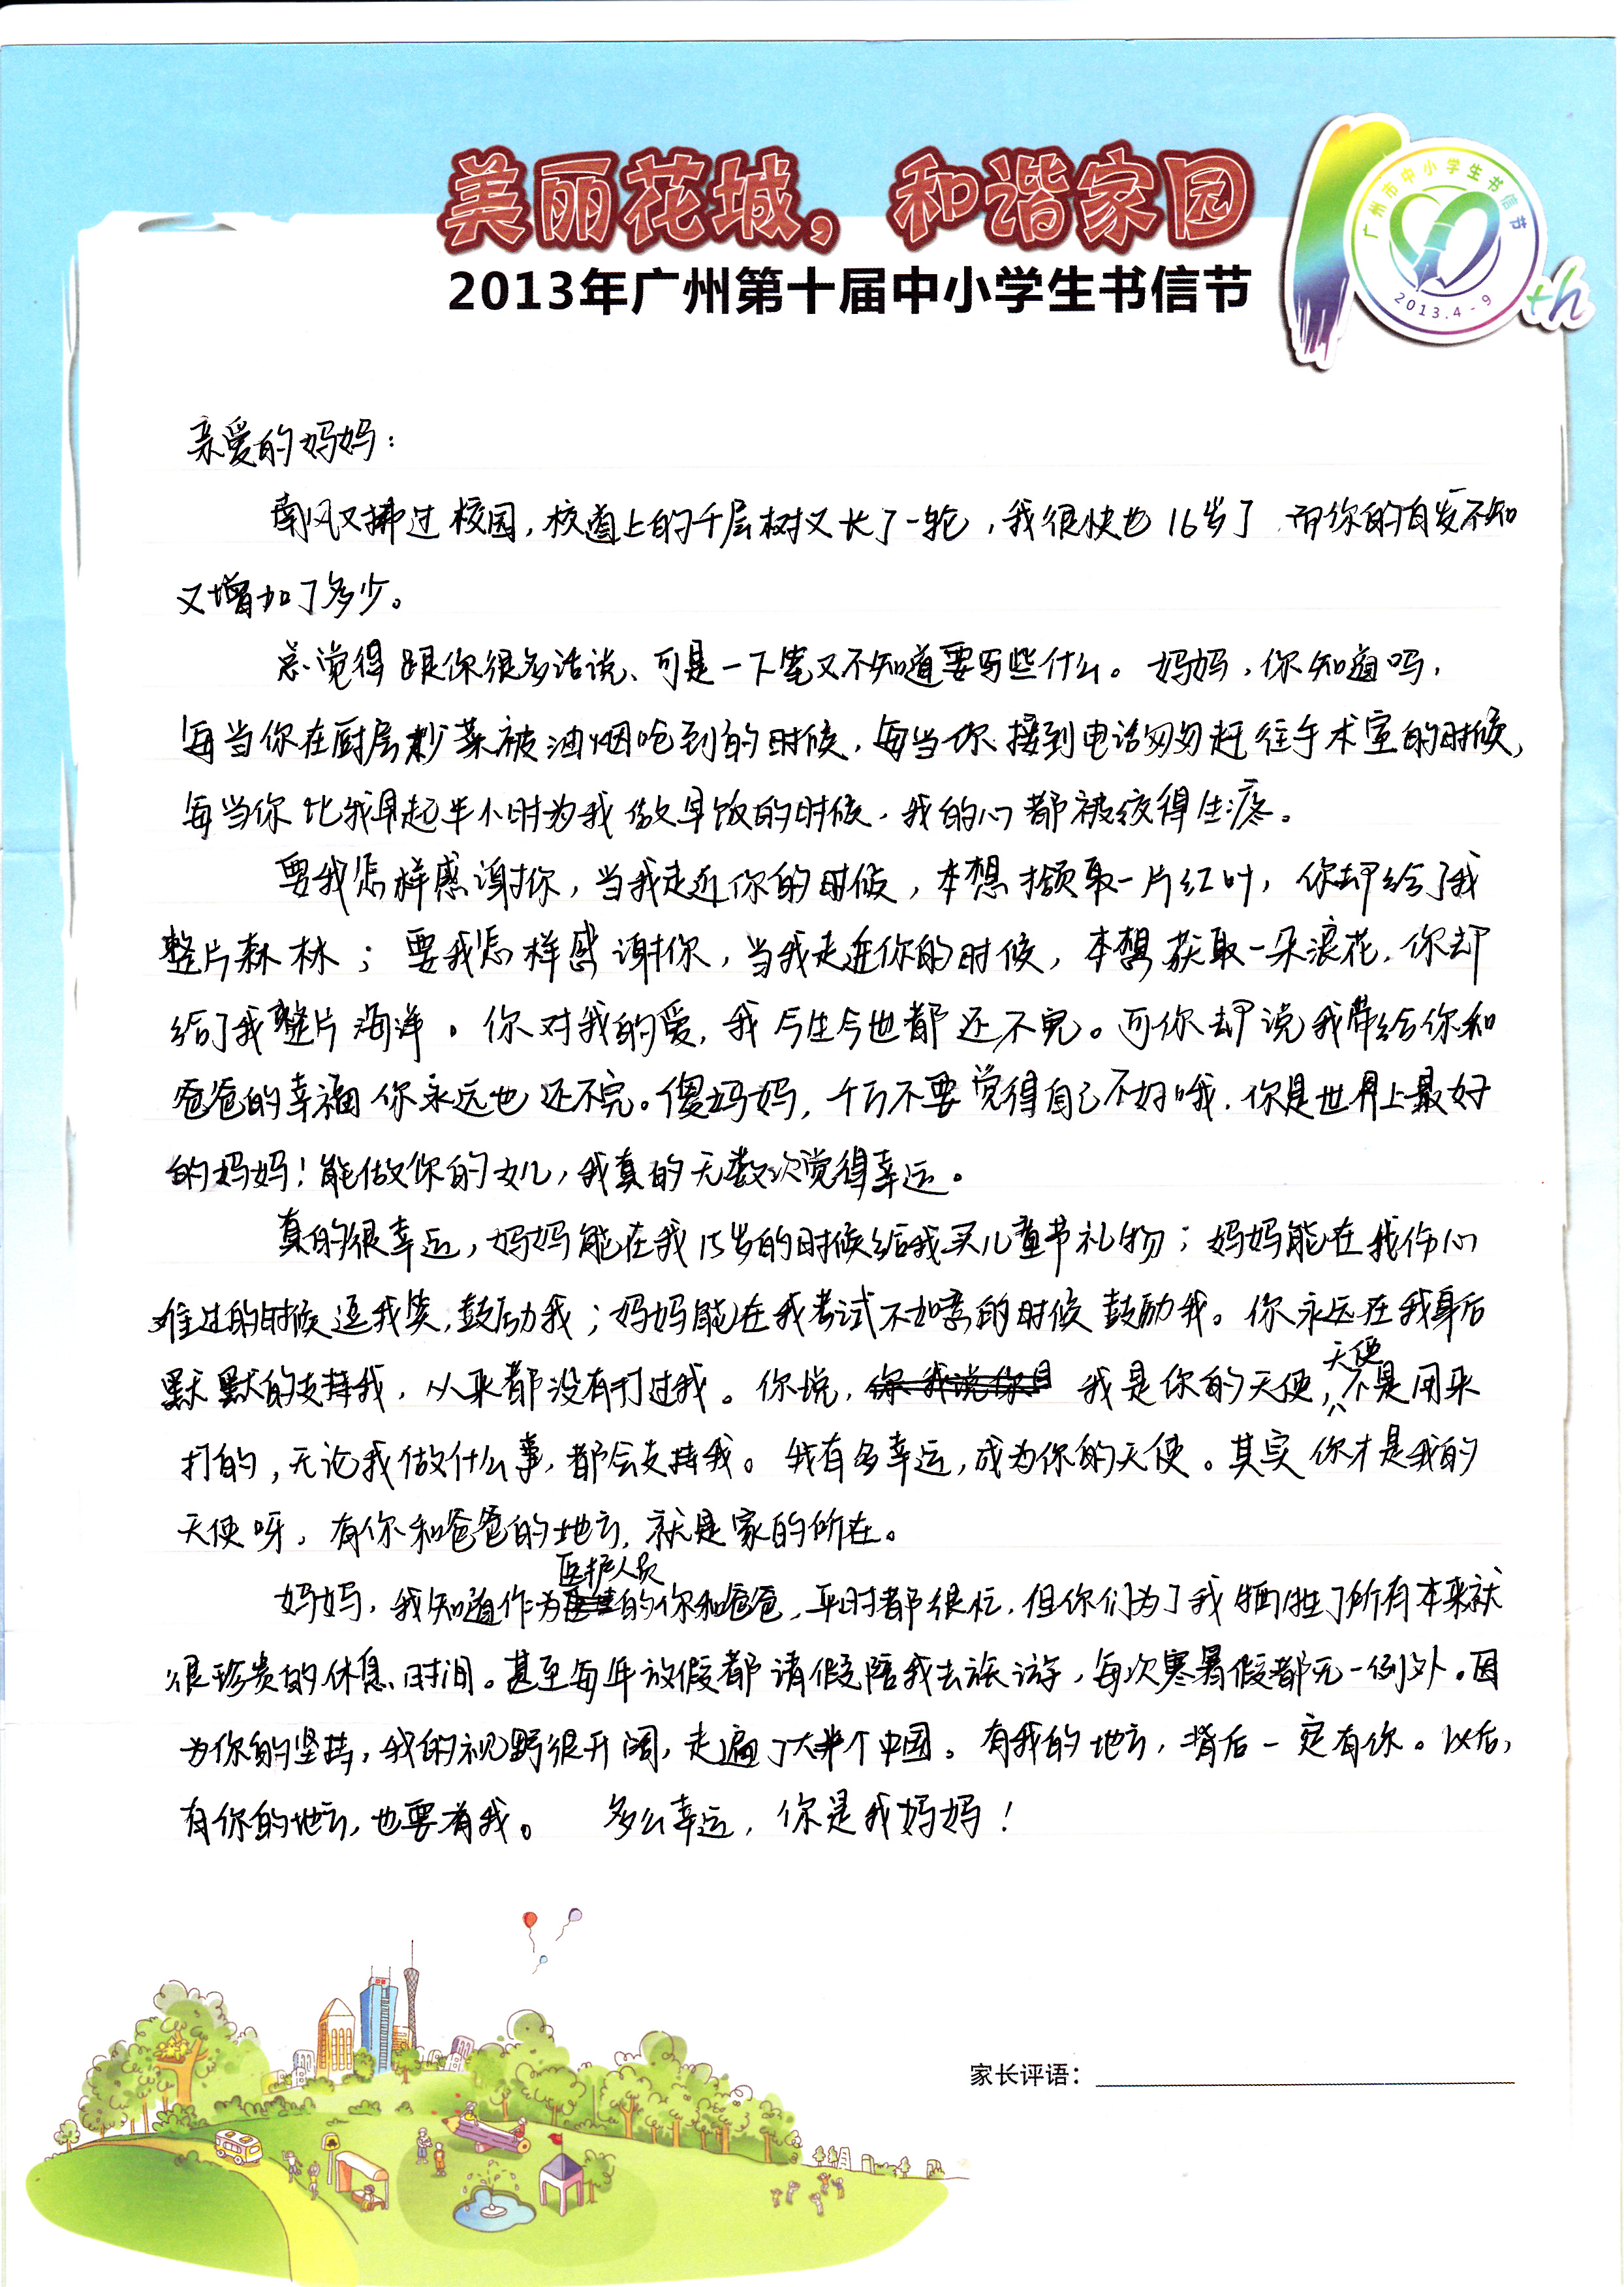 美丽花城，和谐家园
2013年广州第十届中小学生书信节
广州市中小学生书信节
2013.4-9
th
亲爱的妈妈：
南风又拂过校园，校道上的千层树又长了一轮，我很快也16岁了，而你的白发不知
又增加了多少。
总觉得跟你很多话说、可是一下笔又不知道要写些什么。妈妈，你知道吗，
每当你在厨房炒菜被油烟呛到的时候，每当你接到电话匆匆赶往手术室的时候，
每当你比我早起半小时为我做早饭的时候，我的心都被疼得生疼。
要我怎样感谢你，当我走近你的时候，本想撷取一片红叶，你却给了我
整片森林；要我怎样感谢你，当我走进你的时候，本想获取一朵浪花，你却
给了我整片海洋。你对我的爱，我今生今世都还不完。可你却说我带给你和
爸爸的幸福你永远也还不完。傻妈妈，千万不要觉得自己不好哦，你是世界上最好
的妈妈！能做你的女儿，我真的无数次觉得幸运。
真的很幸运，妈妈能在我15岁的时候给我买儿童节礼物；妈妈能在我伤心
难过的时候逗我笑，鼓励我；妈妈能在我考试不如意的时候鼓励我。你永远在我身后
默默的支持我，从来都没有打过我。你说，我是你的天使，天使不是用来
打的，无论我做什么事，都会支持我。我有多幸运，成为你的天使。其实你才是我的
天使呀，有你和爸爸的地方，就是家的所在。
妈妈，我知道作为医护人员的你和爸爸，平时都很忙，但你们为了我牺牲了所有本来就
很珍贵的休息时间。甚至每年放假都请假陪我去旅游，每次寒暑假都无一例外。因
为你的坚持，我的视野很开阔，走遍了大半个中国。有我的地方，背后一定有你。以后，
有你的地方，也要有我。 多么幸运，你是我妈妈！
家长评语：